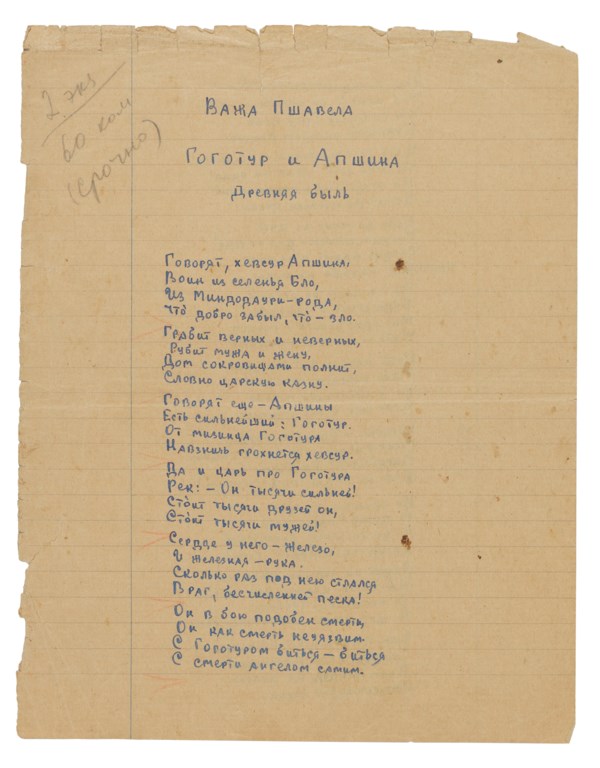 2 экз
60 коп
(срочно)
Важа Пшавела
Гоготур и Апшина
Древняя быль
Говорят, хевсур Апшина,
Воин из селенья Бло,
Из Миндодаури-рода,
Что добро забыл, что – зло.
Грабит верных и неверных,
Рубит мужа и жену,
Дом сокровищами полнит,
Словно царскую казну.
Говорят еще – Апшины
Есть сильнейший: Гоготур.
От мизинца Гоготура
Навзничь грохнется хевсур.
Да и царь про Гоготура
Рек: – Он тысячи сильней!
Сто́ит тысячи друзей он,
Сто́ит тысячи мужей!
Сердце у него – железо,
И железная – рука.
Сколько раз под нею стлался
Враг, бесчисленней песка!
Он в бою подобен смерти,
Он как смерть неуязвим.
С Гоготуром биться – биться
С смерти ангелом самим.